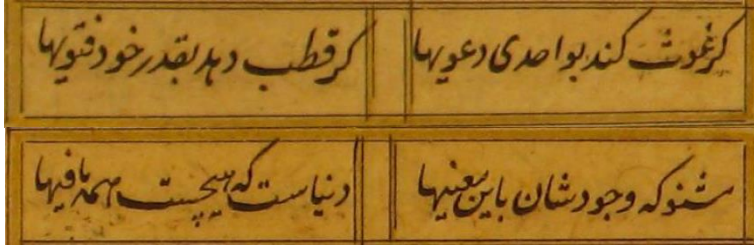 گر غوث کند بواحدی دعویها
گر قطب دهد بقدر خود فتویها
مشنو که وجودشان باین معنیها
دنیاست که هیچست همه مافیها